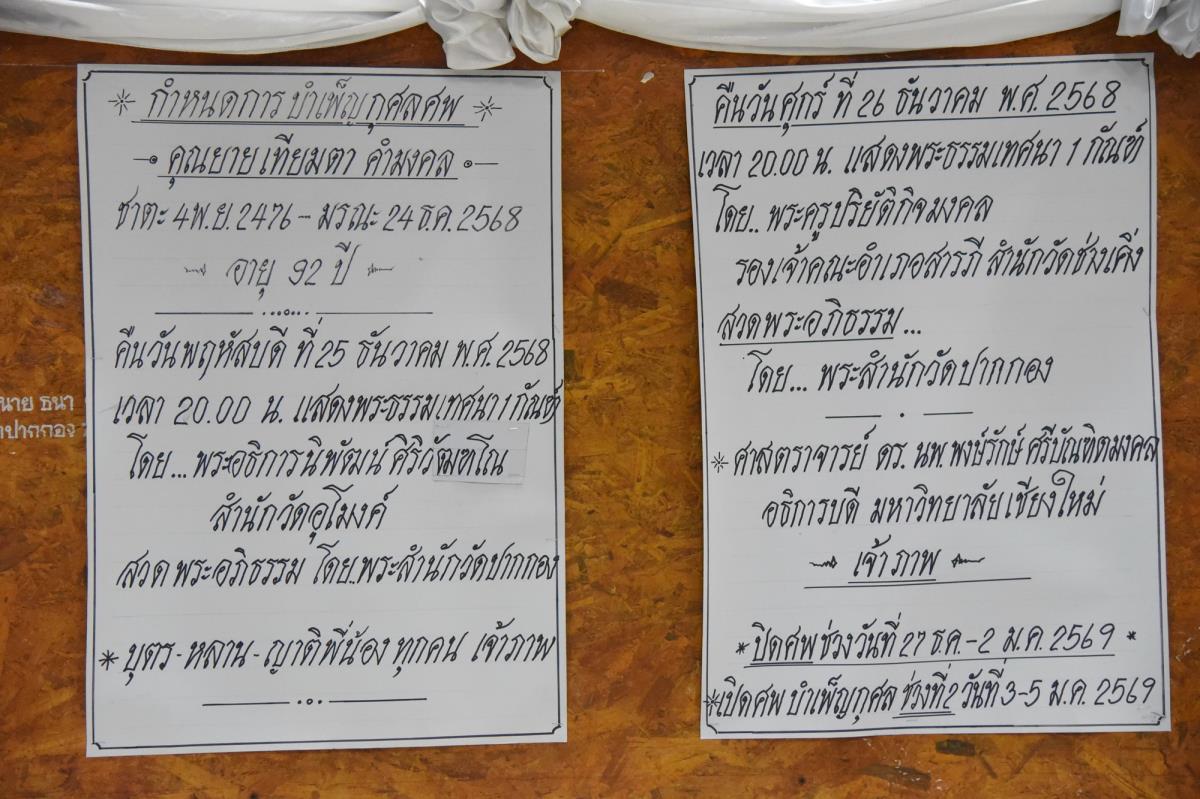 กำหนดการบำเพ็ญกุศลศพ
คุณยายเทียมตา คำมงคล
ชาตะ 4 พ.ย. 2476 - มรณะ 24 ธ.ค. 2568
อายุ 92 ปี
คืนวันพฤหัสบดี ที่ 25 ธันวาคม พ.ศ. 2568
เวลา 20.00 น. แสดงพระธรรมเทศนา 1 กัณฑ์
โดย... พระอธิการนิพัฒน์ ศิริวัฒฑโณ
สำนักวัดอุโมงค์
สวดพระอภิธรรม โดย.พระสำนักวัดปากกอง
* บุตร - หลาน - ญาติพี่น้อง ทุกคน เจ้าภาพ
คืนวันศุกร์ ที่ 26 ธันวาคม พ.ศ. 2568
เวลา 20.00 น. แสดงพระธรรมเทศนา 1 กัณฑ์
โดย.. พระครูปริยัติกิจมงคล
รองเจ้าคณะอำเภอสารภี สำนักวัดช่างเคิ่ง
สวดพระอภิธรรม...
โดย... พระสำนักวัดปากกอง
* ศาสตราจารย์ ดร. นพ. พงษ์รักษ์ ศรีบัณฑิตมงคล
อธิการบดี มหาวิทยาลัยเชียงใหม่
เจ้าภาพ
* ปิดศพช่วงวันที่ 27 ธ.ค. - 2 ม.ค. 2569 *
* เปิดศพ บำเพ็ญกุศล ช่วงที่2 วันที่ 3-5 ม.ค. 2569
นาย ธนา
ปากกอง